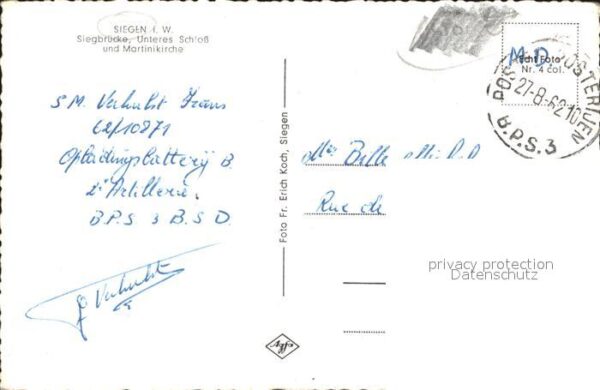 SIEGEN i. W.
Siegbrücke, Unteres Schloß
und Martinikirche
S.M. Verhulst Frans
62/10871
Opleidingsbatterij B.
d'Artillerie.
B.P.S 3 B.S.D.
Verhulst
Foto Fr. Erich Koch, Siegen
Agfa
M.D.
Echt Foto
Nr. 4 col.
POSTERIJEN
27-8-62 10
B.P.S.3
Melle Belle
Rue de
privacy protection
Datenschutz